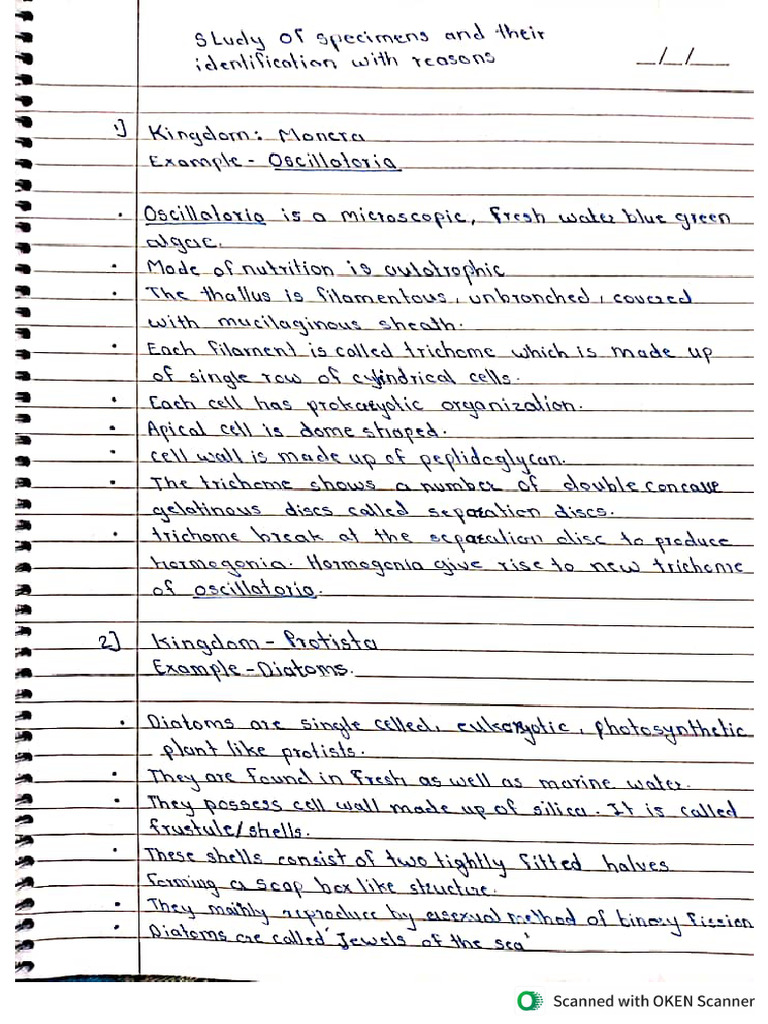 Study of specimens and their
identification with reasons
_/_/__
1] Kingdom: Monera
Example - Oscillatoria
. Oscillatoria is a microscopic, fresh water blue green
algae.
. Mode of nutrition is autotrophic
. The thallus is filamentous, unbranched, covered
with mucilaginous sheath.
. Each filament is called trichome which is made up
of single row of cylindrical cells.
. Each cell has prokaryotic organization.
. Apical cell is dome shaped.
. cell wall is made up of peptidoglycan.
. The trichome shows a number of double concave
gelatinous discs called separation discs.
. trichome break at the separation disc to produce
hormogonia. Hormogonia give rise to new trichome
of oscillatoria.
2] Kingdom - Protista
Example - Diatoms.
. Diatoms are single celled, eukaryotic, photosynthetic
plant like protists.
. They are found in fresh as well as marine water.
. They possess cell wall made up of silica. It is called
frustule/shells.
. These shells consist of two tightly fitted halves
forming a soap box like structure.
. They mainly reproduce by asexual method of binary fission
. Diatoms are called 'Jewels of the sea'
Scanned with OKEN Scanner